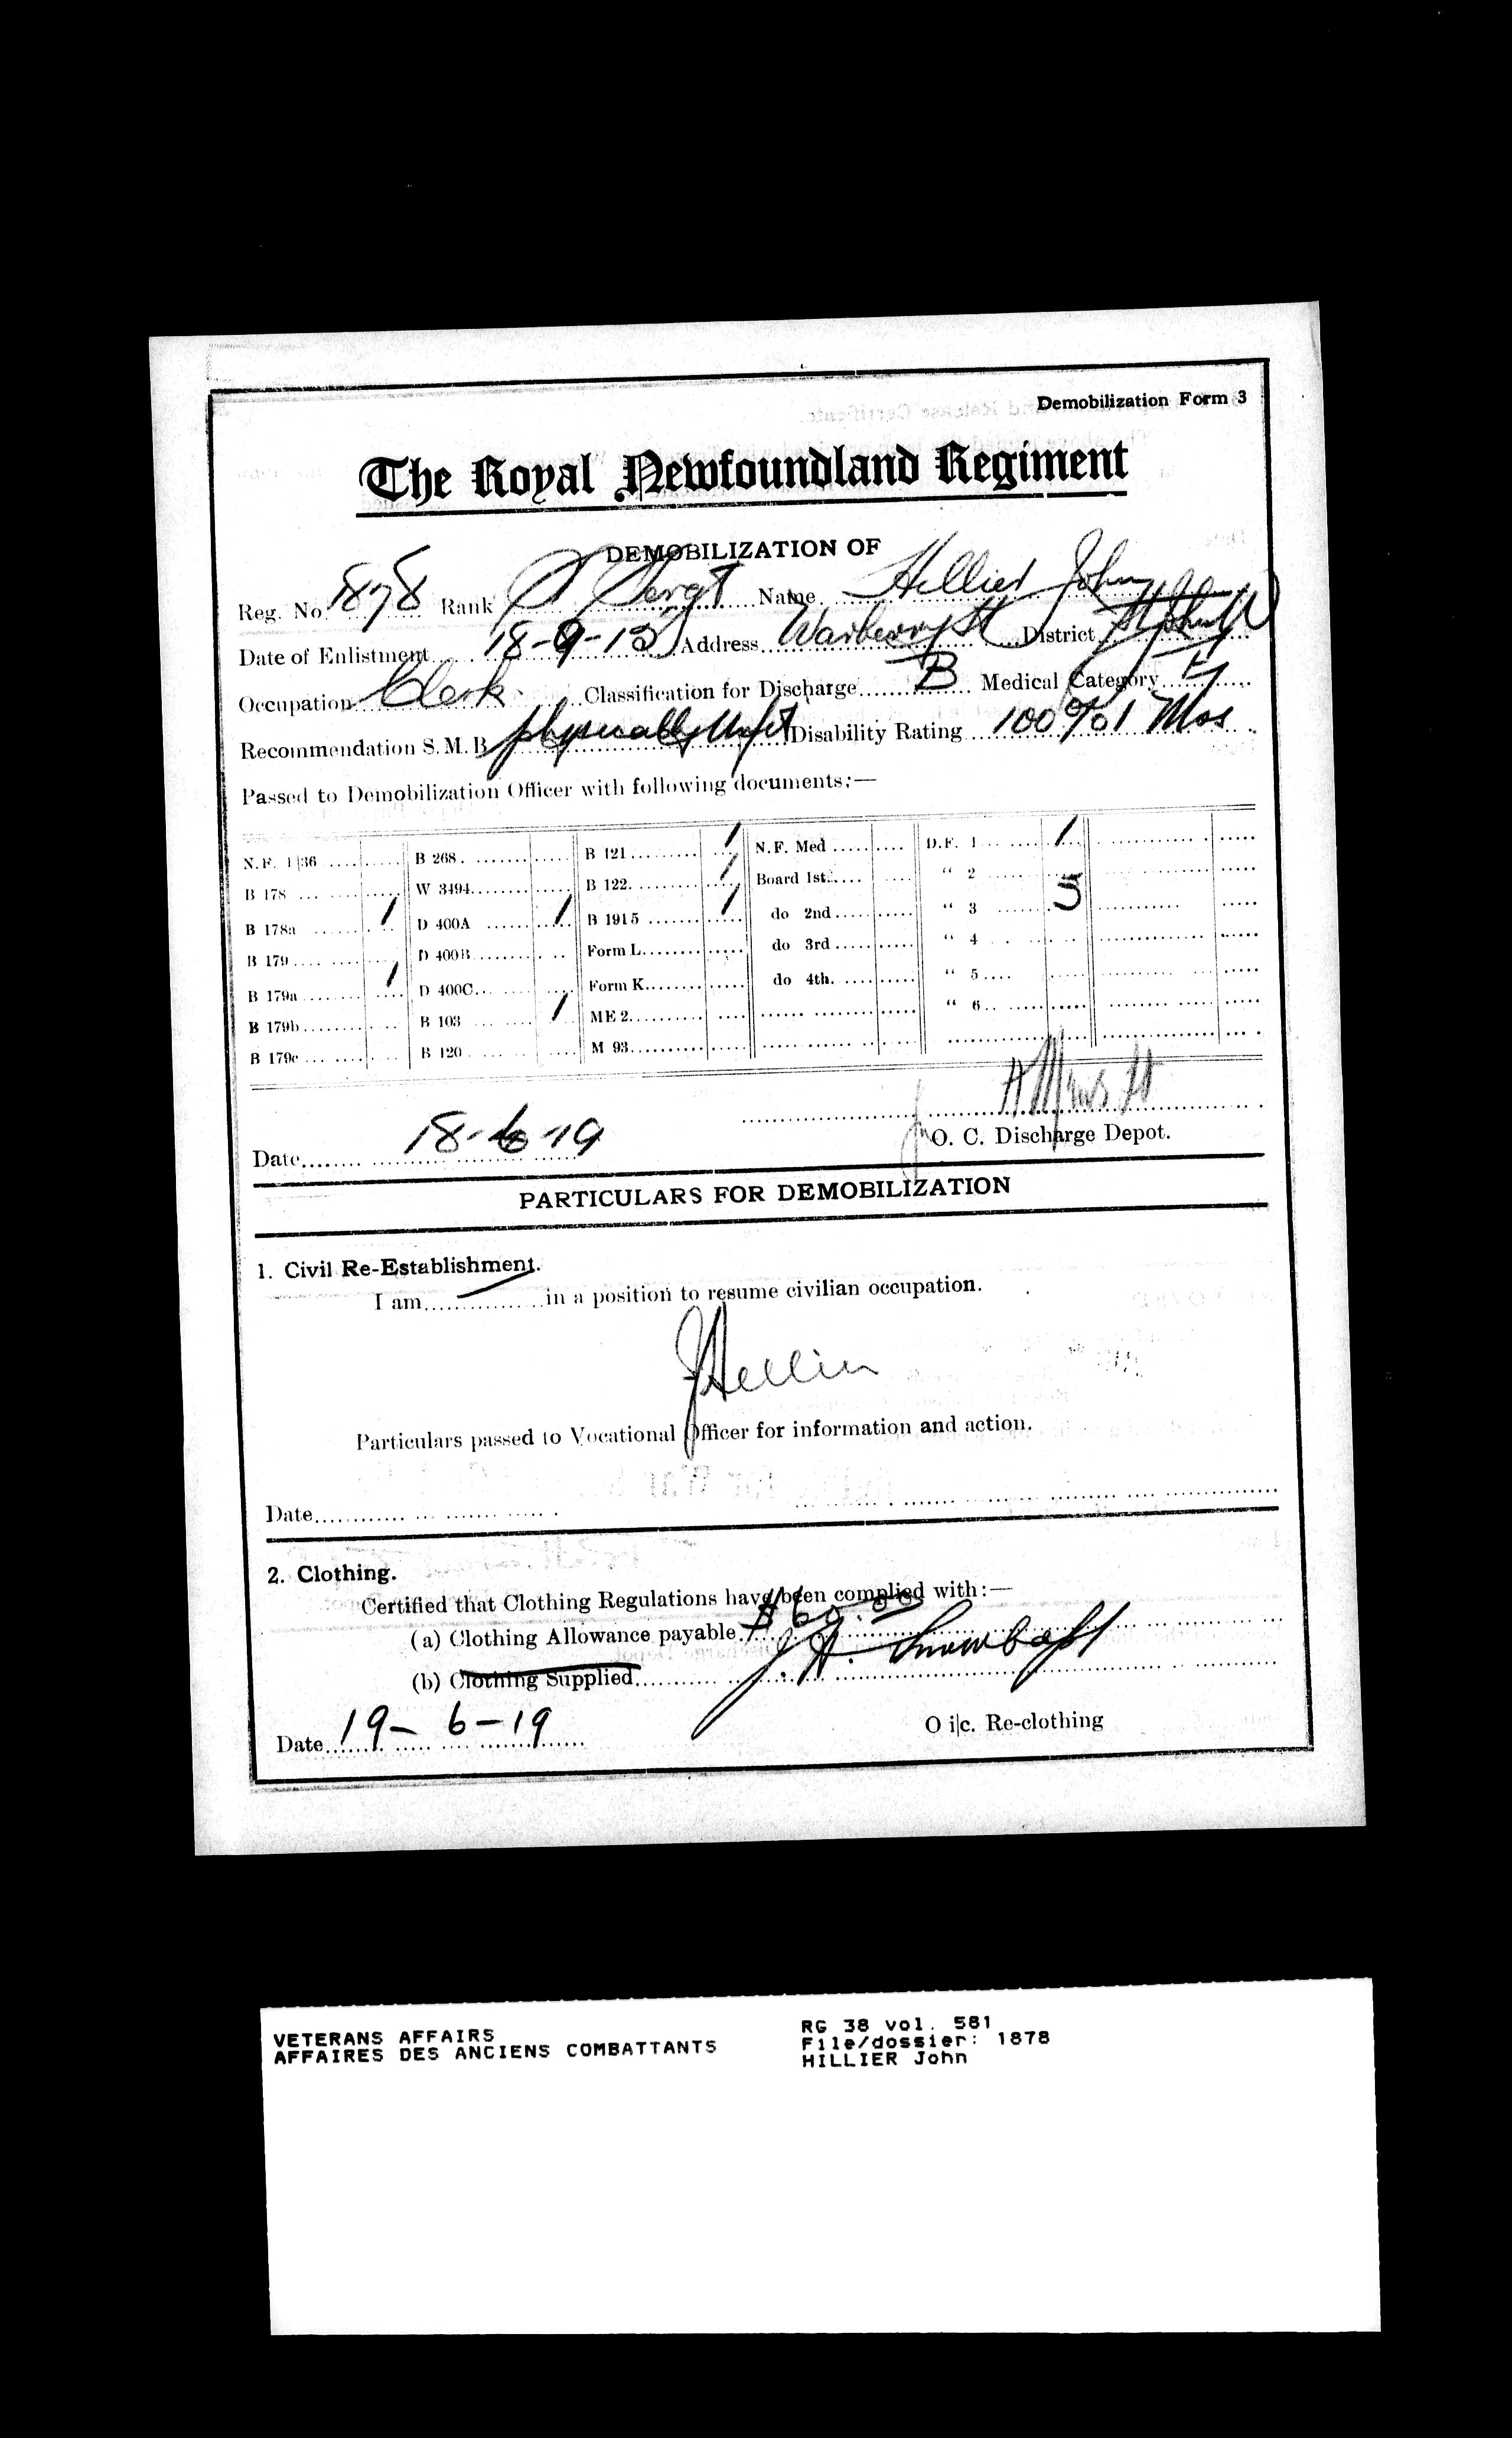 Demobilization Form 3
The Royal Newfoundland Regiment
DEMOBILIZATION OF
Reg. No. 1878 Rank Sergt Name Hillier John
Date of Enlistment 18-9-15 Address District
Occupation Clerk Classification for Discharge B Medical Category
Recommendation S. M. B. physically unfit Disability Rating 100% 1 Mos
Passed to Demobilization Officer with following documents:—
N.F. 1|36 B 268 B 121 / N.F. Med D.F. 1 /
B 178 W 3494 B 122 / Board 1st " 2
B 178a / D 400A / B 1915 / do 2nd " 3 5
B 179 D 400B Form L do 3rd " 4
B 179a / D 400C Form K do 4th " 5
B 179b B 103 / ME 2 " 6
B 179c B 120 M 93
Date 18-6-19
O. C. Discharge Depot.
PARTICULARS FOR DEMOBILIZATION
1. Civil Re-Establishment.
I am in a position to resume civilian occupation.
JHillier
Particulars passed to Vocational Officer for information and action.
Date
2. Clothing.
Certified that Clothing Regulations have been complied with:—
(a) Clothing Allowance payable $60.00
(b) Clothing Supplied
Date 19-6-19 O i|c. Re-clothing
VETERANS AFFAIRS RG 38 vol. 581
AFFAIRES DES ANCIENS COMBATTANTS File/dossier: 1878
HILLIER John